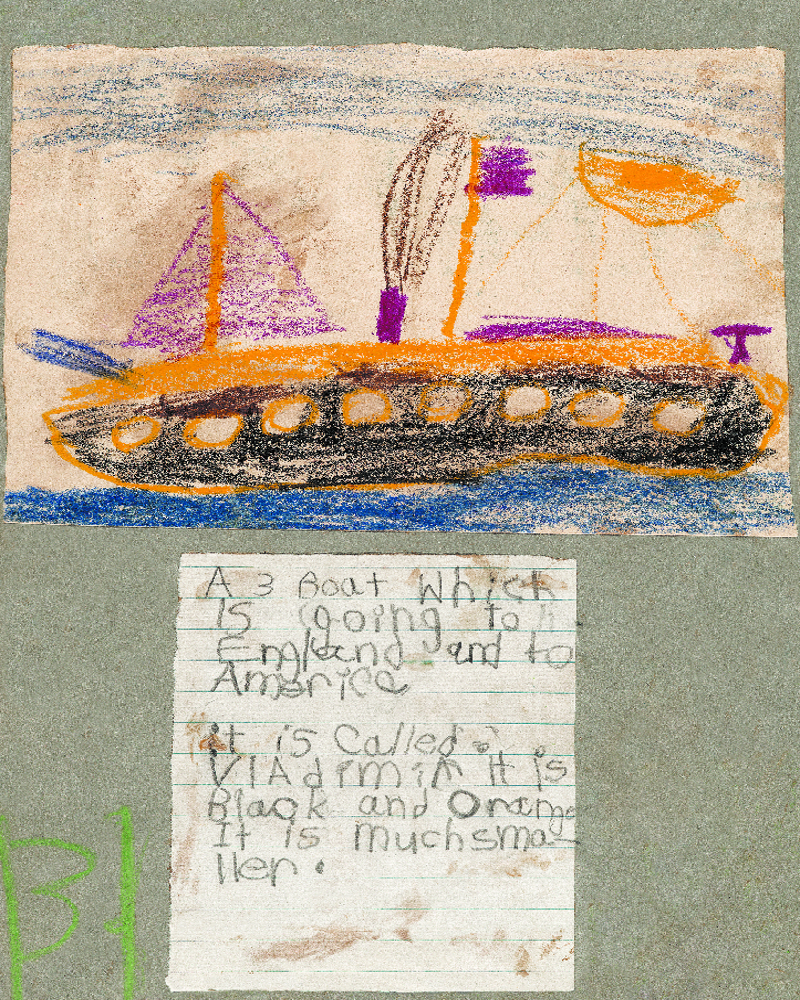 A 3 Boat Which
is going to
England and to
America
it is Called
VlAdimir It is
Black and Orange
It is much sma-
ller.
B 1